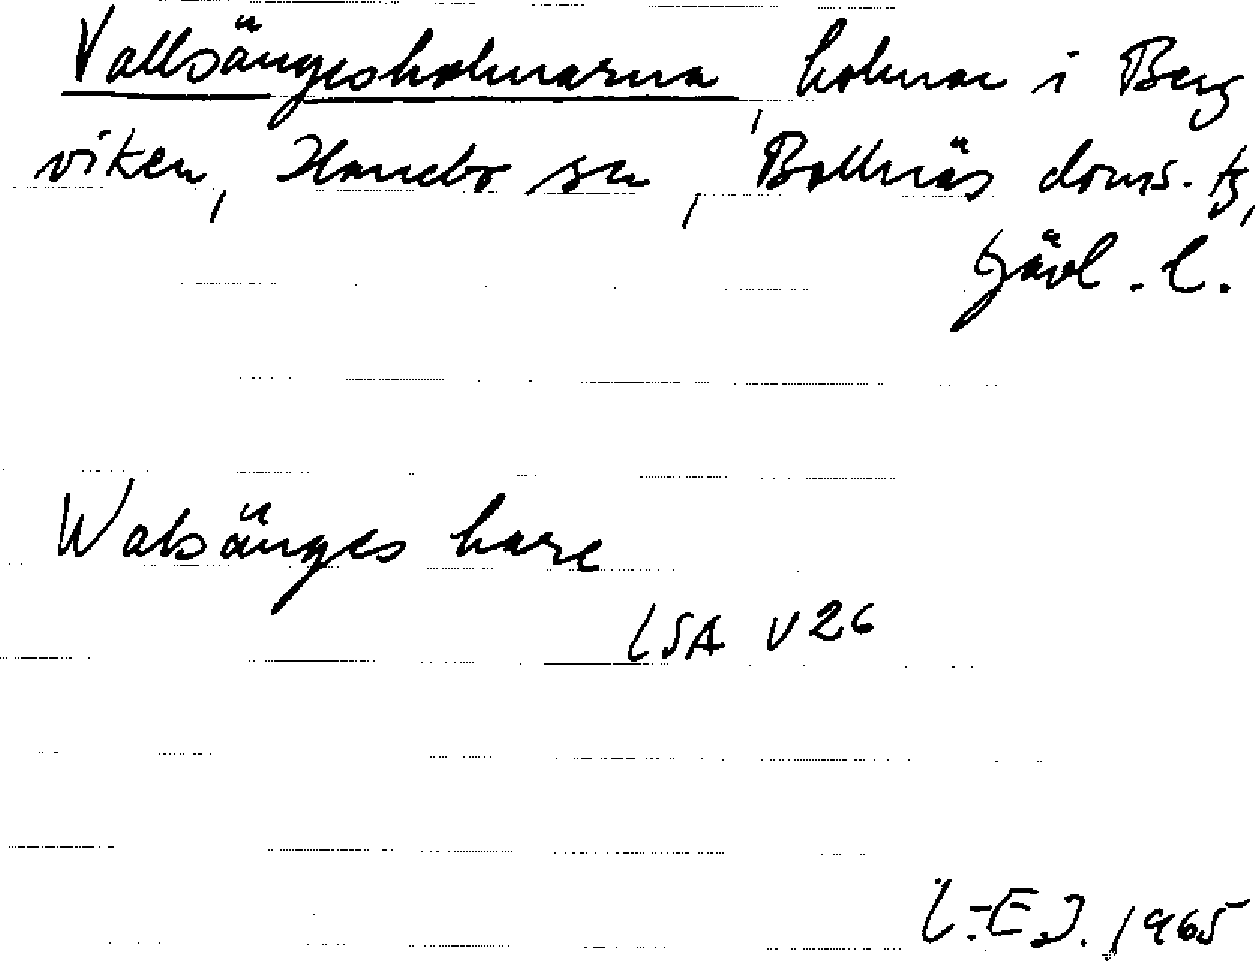 Vallsängesholmarna, holmar i Berg
viken, Hanebo sn, Bollnäs doms. tg,
Gävl. l.
Walsänges hare
LSA V26
L.-E.J. 1965